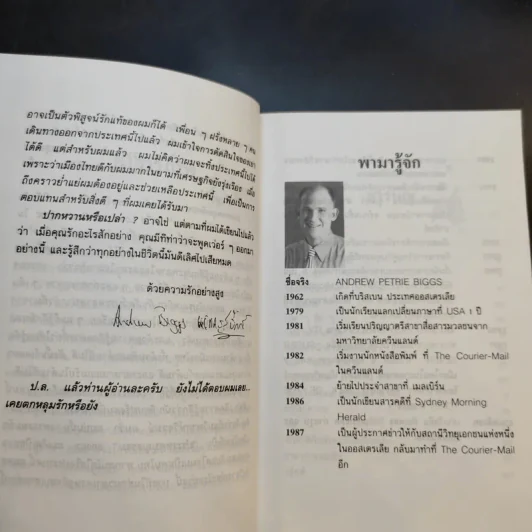 อาจเป็นตัวพิสูจน์รักแท้ของผมก็ได้ เพื่อน ๆ ฝรั่งหลาย ๆ คน
เดินทางออกจากประเทศนี้ไปแล้ว ผมเข้าใจการตัดสินใจของเขา
ได้ดี แต่สำหรับผมแล้ว ผมไม่คิดว่าผมจะทิ้งประเทศนี้ไปได้
เพราะว่าเมืองไทยดีกับผมมากในยามที่เศรษฐกิจยังรุ่งเรือง เมื่อ
ถึงคราวย่ำแย่ผมต้องอยู่และช่วยเหลือประเทศนี้ เพื่อเป็นการ
ตอบแทนสำหรับสิ่งดี ๆ ที่ผมเคยได้รับมา
ปากหวานหรือเปล่า ? อาจใช่ แต่ตามที่ผมได้เรียนไปแล้ว
ว่า เมื่อคุณรักอะไรสักอย่าง คุณมีทีท่าว่าจะพูดเว่อร์ ๆ ออกมา
อย่างนี้ และรู้สึกว่าทุกอย่างในชีวิตนี้มันดีเลิศไปเสียหมด
ด้วยความรักอย่างสูง
Andrew Biggs
ป.ล. แล้วท่านผู้อ่านละครับ ยังไม่ได้ตอบผมเลย...
เคยตกหลุมรักหรือยัง
พามารู้จัก
ชื่อจริง ANDREW PETRIE BIGGS
1962 เกิดที่บริสเบน ประเทศออสเตรเลีย
1979 เป็นนักเรียนแลกเปลี่ยนภาษาที่ USA 1 ปี
1981 เริ่มเรียนปริญญาตรีสาขาสื่อสารมวลชนจาก
มหาวิทยาลัยควีนแลนด์
1982 เริ่มงานนักหนังสือพิมพ์ ที่ The Courier-Mail
ในควีนแลนด์
1984 ย้ายไปประจำสาขาที่ เมลเบิร์น
1986 เป็นนักเขียนสารคดีที่ Sydney Morning
Herald
1987 เป็นผู้ประกาศข่าวให้กับสถานีวิทยุเอกชนแห่งหนึ่ง
ในออสเตรเลีย กลับมาทำที่ The Courier-Mail
อีก